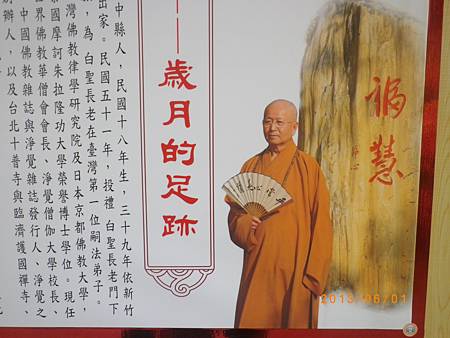 福慧
淨心
歲月的足跡
中縣人，民國十八年生，三十九年依新竹
出家。民國五十一年，授禮 白聖長老門下
，為 白聖長老在臺灣第一位嗣法弟子。
灣佛教律學研究院及日本京都佛教大學，
國摩訶朱拉隆功大學榮譽博士學位。現任
界佛教華僧會會長、淨覺僧伽大學校長、
中國佛教雜誌與淨覺雜誌發行人、淨覺之
辦人，以及台北十普寺與臨濟護國禪寺、
2013/06/01